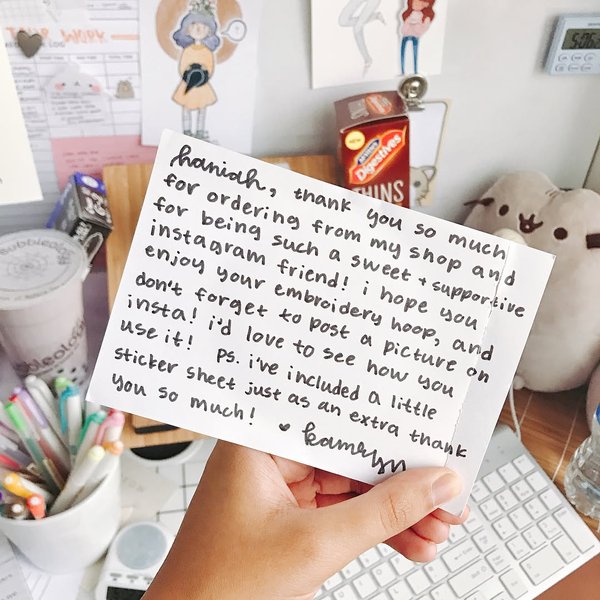 YOUR WORK
5:06
NEW
McVITIE'S
Digestives
THINS
Bubbleology
bbleology
haniah, thank you so much
for ordering from my shop and
for being such a sweet + supportive
instagram friend! i hope you
enjoy your embroidery hoop, and
don't forget to post a picture on
insta! i'd love to see how you
use it! PS. i've included a little
sticker sheet just as an extra thank
you so much! ♥ kamryn